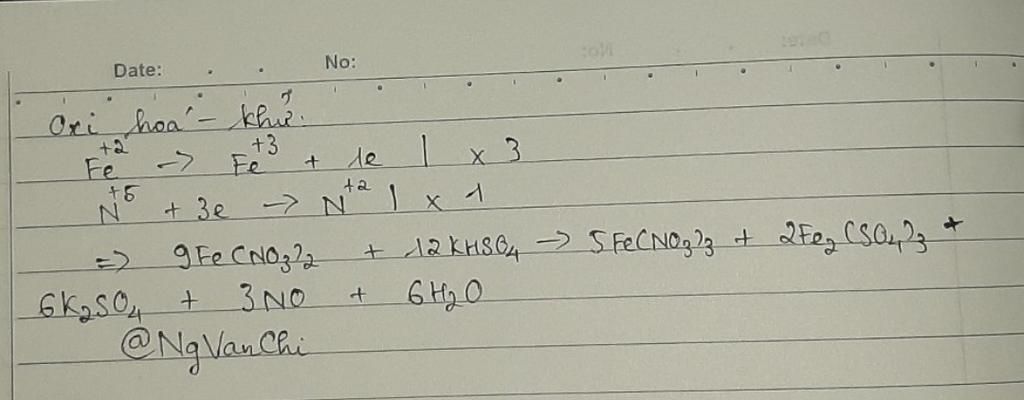 Date: No:
Oxi hoá - khử.
Fe⁺² -> Fe⁺³ + 1e | x 3
N⁺⁵ + 3e -> N⁺² | x 1
=> 9Fe(NO₃)₂ + 12KHSO₄ -> 5Fe(NO₃)₃ + 2Fe₂(SO₄)₃ +
6K₂SO₄ + 3NO + 6H₂O
@NgVanChi